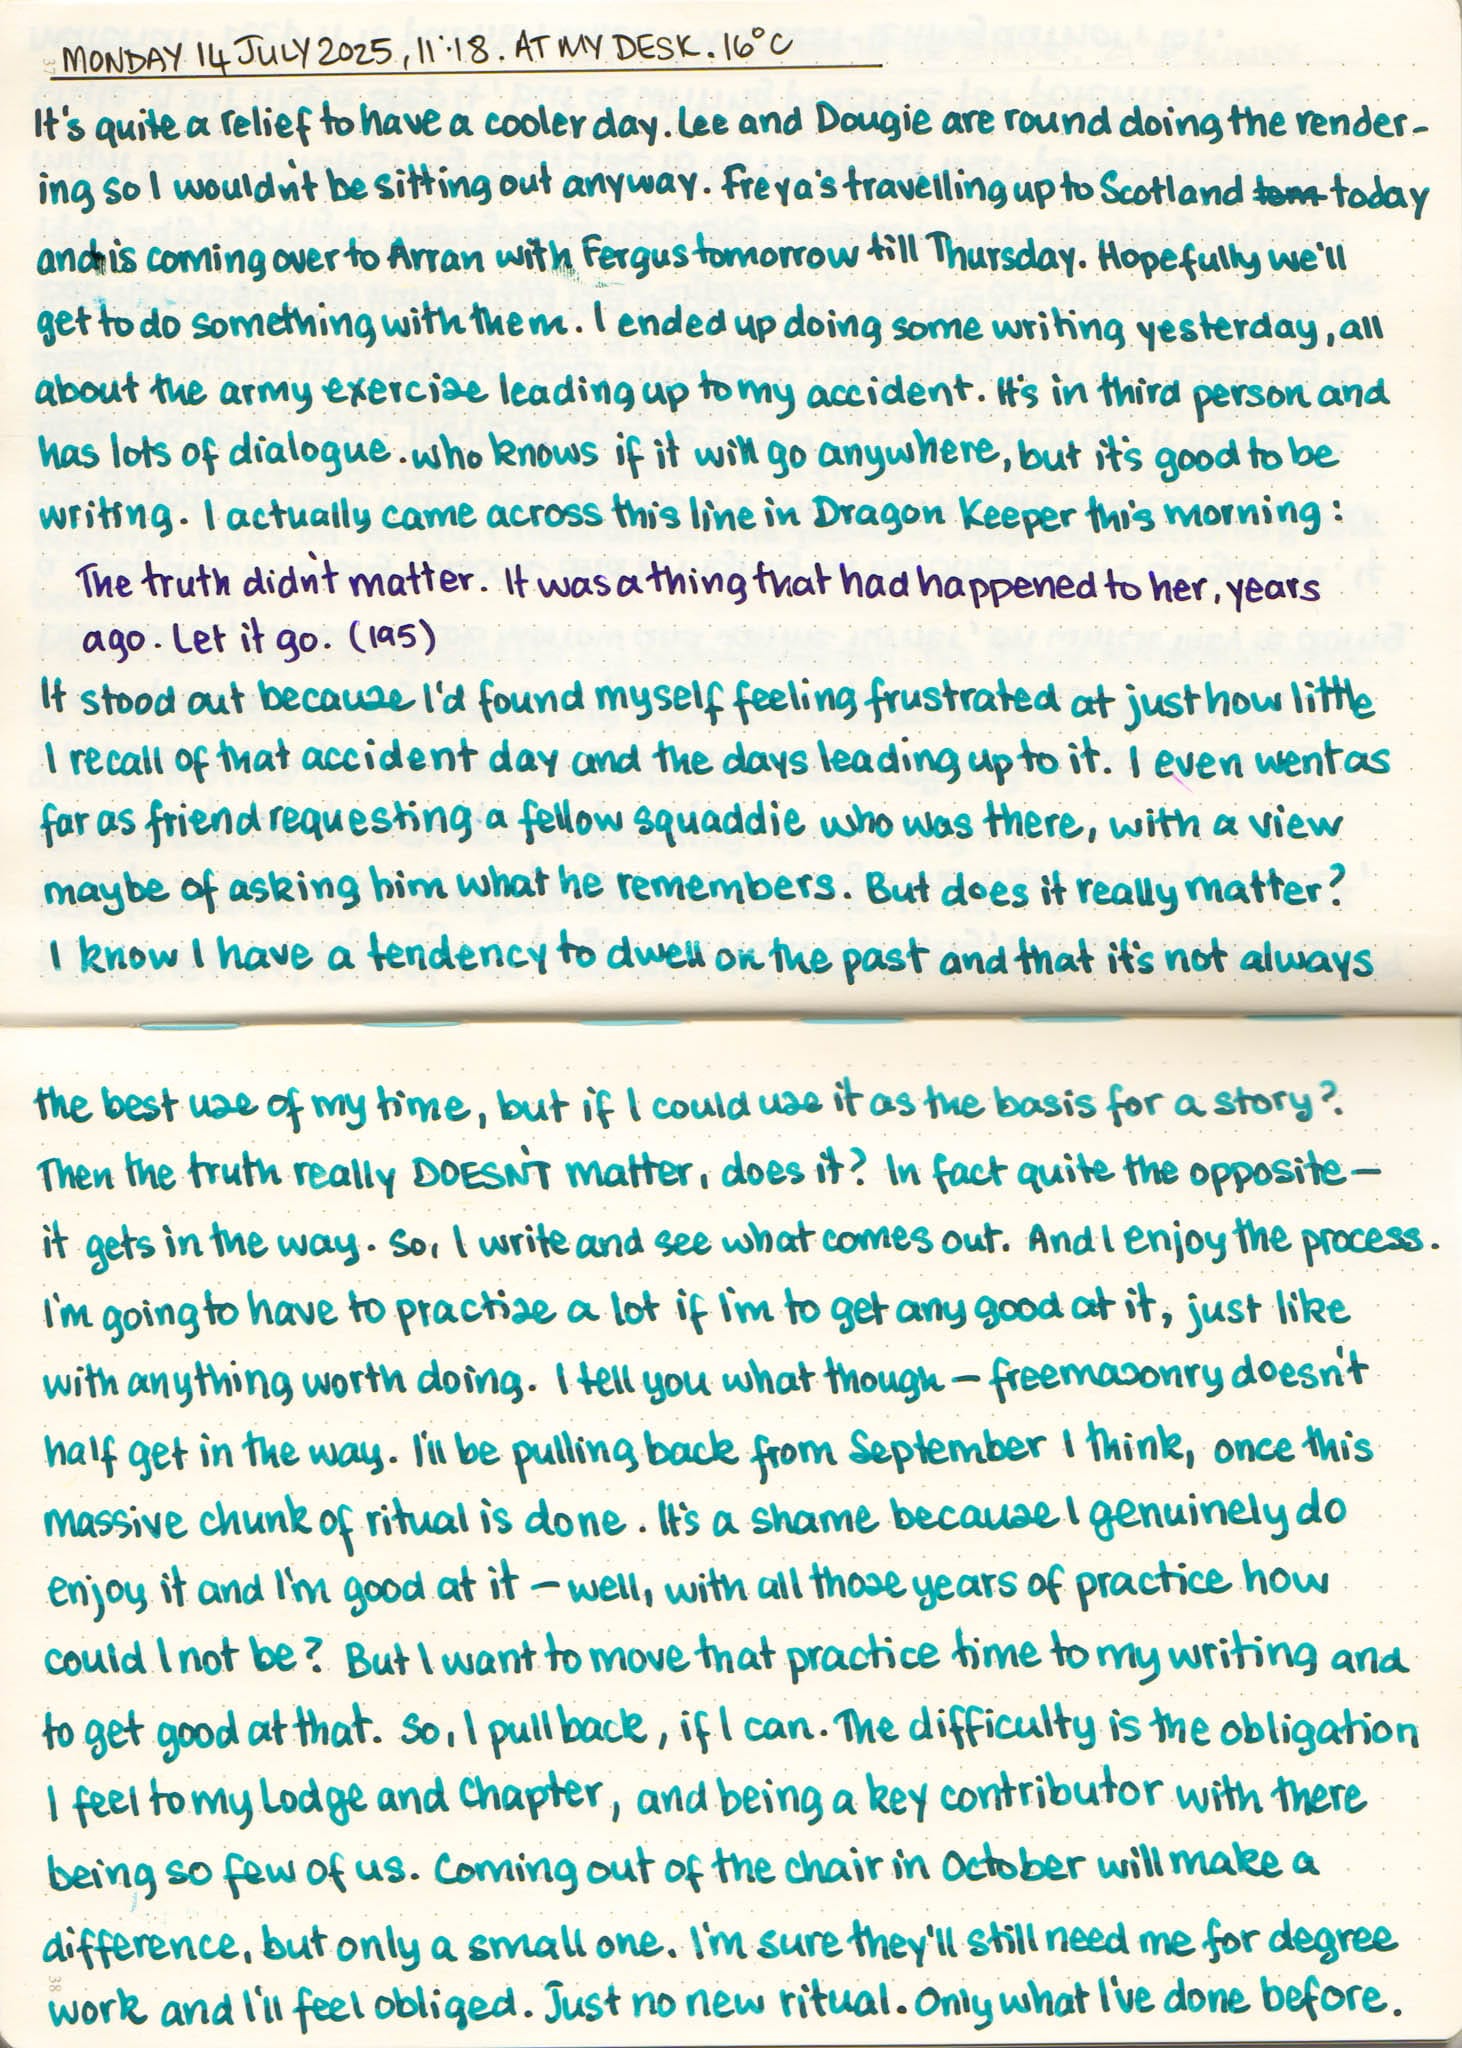 MONDAY 14 JULY 2025, 11:18. AT MY DESK. 16°C
It's quite a relief to have a cooler day. Lee and Dougie are round doing the render-
ing so I wouldn't be sitting out anyway. Freya's travelling up to Scotland tom today
and is coming over to Arran with Fergus tomorrow till Thursday. Hopefully we'll
get to do something with them. I ended up doing some writing yesterday, all
about the army exercise leading up to my accident. It's in third person and
has lots of dialogue. Who knows if it will go anywhere, but it's good to be
writing. I actually came across this line in Dragon Keeper this morning:
The truth didn't matter. It was a thing that had happened to her, years
ago. Let it go. (195)
It stood out because I'd found myself feeling frustrated at just how little
I recall of that accident day and the days leading up to it. I even went as
far as friend requesting a fellow squaddie who was there, with a view
maybe of asking him what he remembers. But does it really matter?
I know I have a tendency to dwell on the past and that it's not always
the best use of my time, but if I could use it as the basis for a story?
Then the truth really DOESN'T matter, does it? In fact quite the opposite —
it gets in the way. So, I write and see what comes out. And I enjoy the process.
I'm going to have to practise a lot if I'm to get any good at it, just like
with anything worth doing. I tell you what though — freemasonry doesn't
half get in the way. I'll be pulling back from September I think, once this
massive chunk of ritual is done. It's a shame because I genuinely do
enjoy it and I'm good at it — well, with all those years of practice how
could I not be? But I want to move that practice time to my writing and
to get good at that. So, I pull back, if I can. The difficulty is the obligation
I feel to my Lodge and Chapter, and being a key contributor with there
being so few of us. Coming out of the chair in October will make a
difference, but only a small one. I'm sure they'll still need me for degree
38
work and I'll feel obliged. Just no new ritual. Only what I've done before.